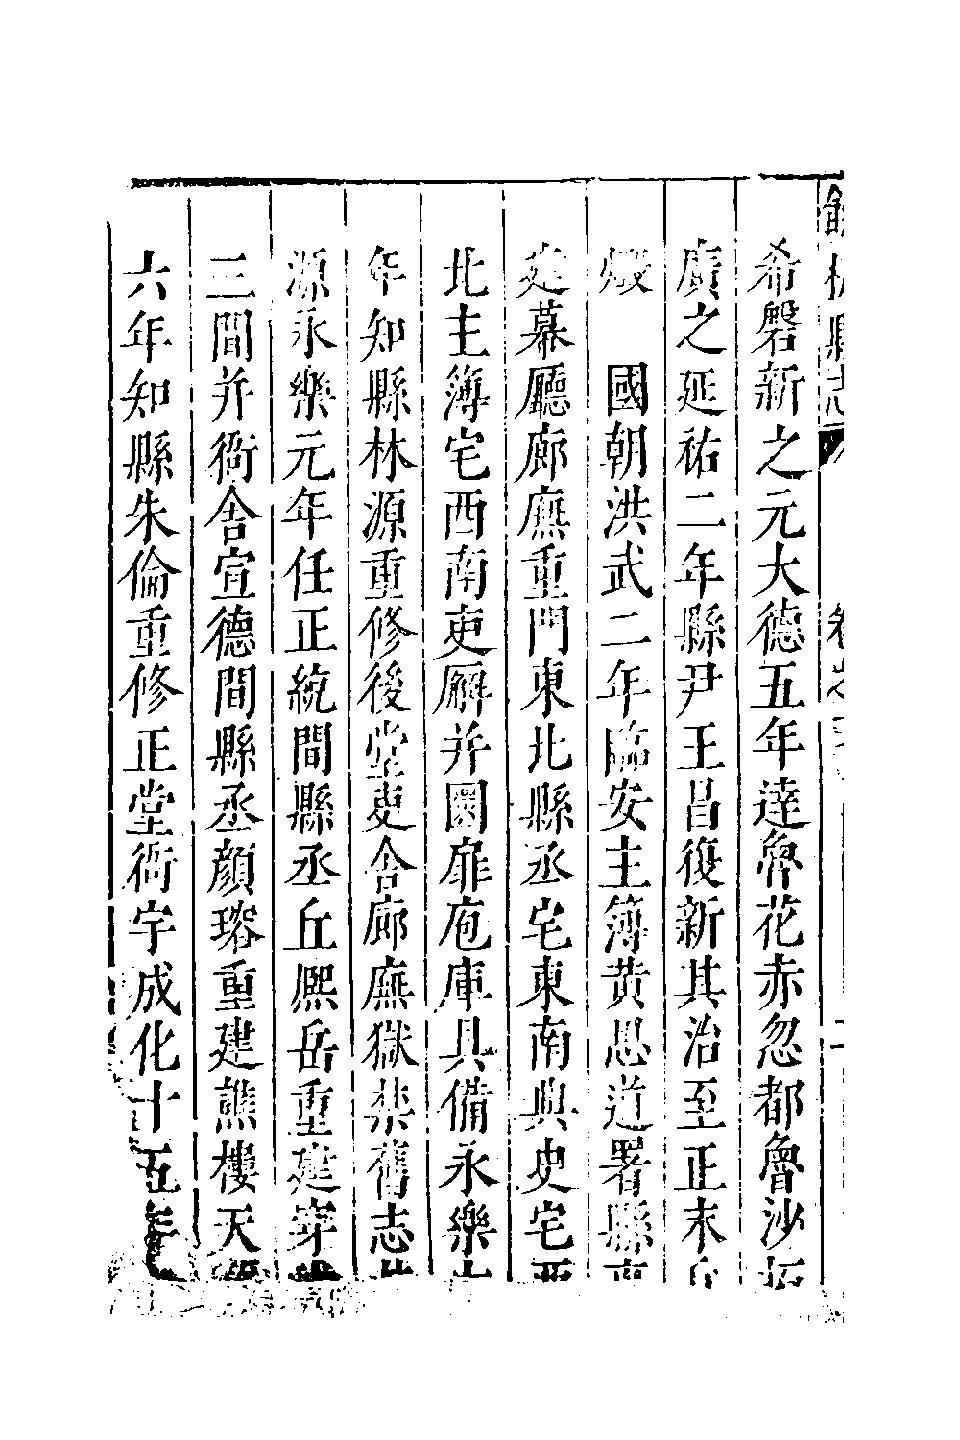 希磐新之元大德五年達魯花赤忽都魯沙拓
廣之延祐二年縣尹王昌復新其治至正末
燬　國朝洪武二年臨安主簿黄思道署縣
建幕廳廊廡重門東北縣丞宅東南典史宅西
北主簿宅西南吏廨并圜扉庖庫具備永樂
年知縣林源重修後堂吏舍廊廡獄禁舊志
源永樂元年任正統間縣丞丘熈岳重建穿
三間并衙舍宣德間縣丞顔瑢重建譙樓天
六年知縣朱倫重修正堂衙宇成化十五年